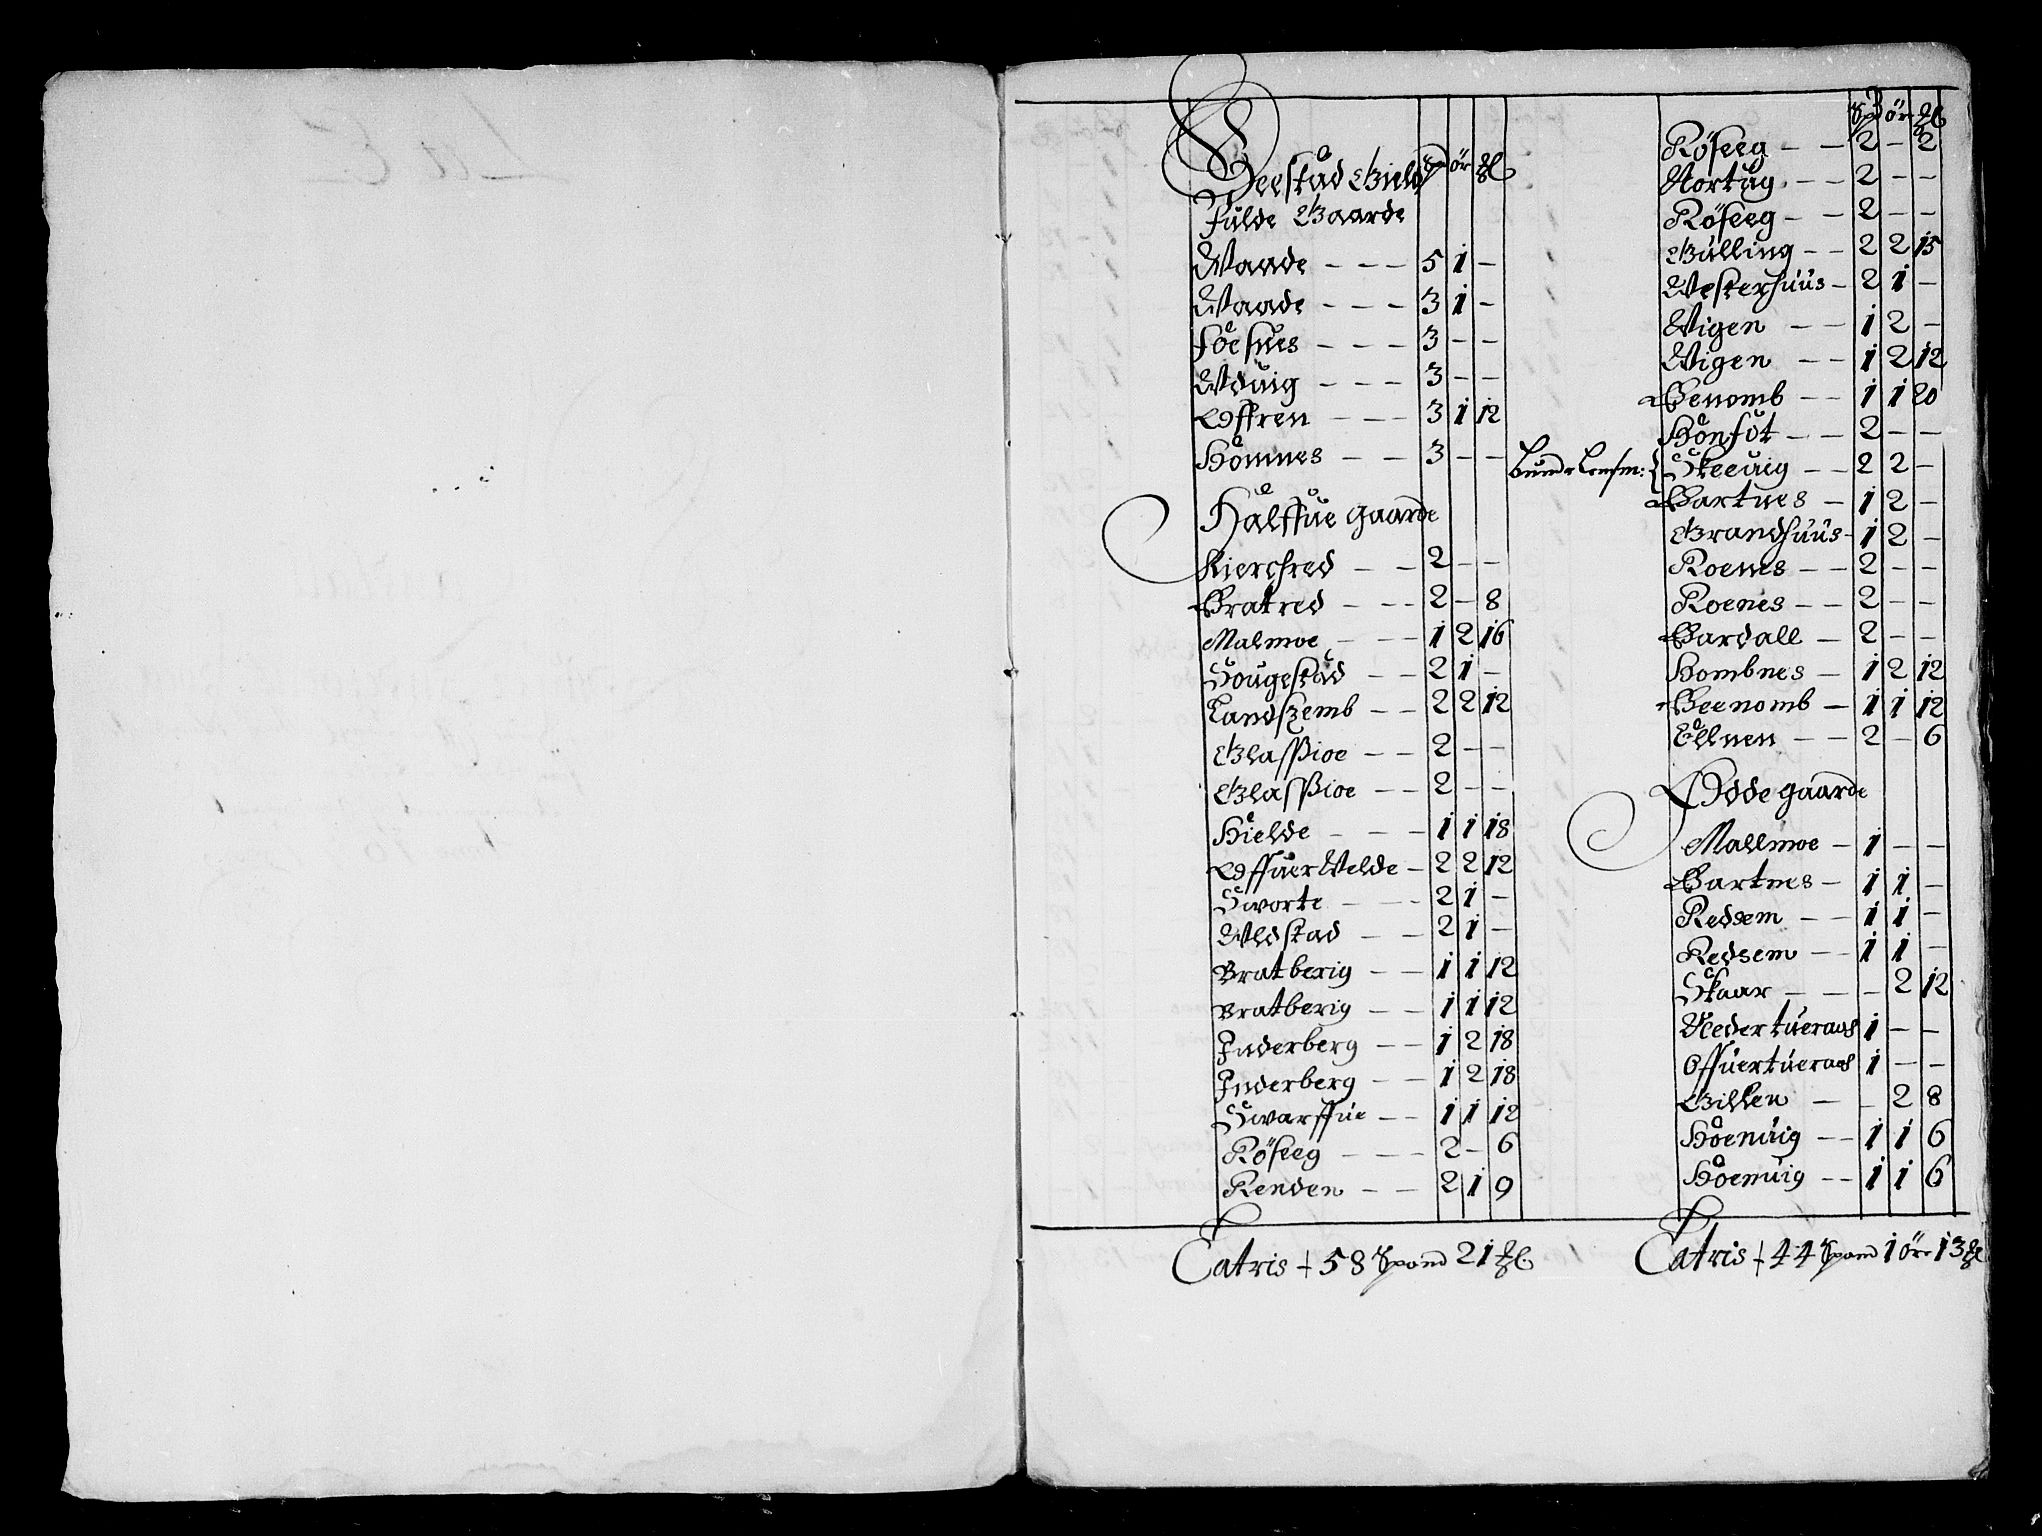 Beestad Gield Spd ör ℔
Fulde Gaarde
Waade - - - 5 1 -
Waade - - - 3 1 -
Föesnes - - - 3 - -
Wduig - - - 3 - -
Offren - - - 3 1 12
Homnes - - 3 - -
Halffue gaarde
Kierchred - - 2 - -
Bratred - - - 2 - 8
Malmoe - - - 1 2 16
Sougestad - - 2 1 -
Landszemb - - 2 2 12
Glaszioe - - 2 - -
Glaszioe - - 2 - -
Hielde - - - 1 1 18
Offuer Velde - 2 2 12
Sworte - - - 2 1 -
Wldstad - - 2 1 -
Bratberig - - 1 1 12
Bratberig - - 1 1 12
Inderberg - - 1 2 18
Inderberg - - 1 2 18
Swarffue - - 1 1 12
Röseeg - - - 2 - 6
Renden - - 2 1 9
Latris + 58 Spand 21 ℔.
Spd ör ℔
Röseeg - - 2 - 2
Nortug - - 2 - -
Röseeg - - 2 - -
Gulling - - 2 2 15
Westerhuus - 2 1 -
Wigen - - 1 2 -
Wigen - - 1 2 12
Benomb - - 1 1 20
Honfot - - 2 - -
Bunde Lensm: { Skeeuig - - 2 2 -
Bartnes - 1 2 -
Grandhuus - 1 2 -
Roenes - - 2 - -
Roenes - - 2 - -
Bardall - 2 - -
Hombnes - 1 2 12
Beenomb - 1 1 12
Ellnen - - 2 - 6
Ödde gaarde
Mallmoe - 1 - -
Bartnes - 1 1 -
Redsem - - 1 1 -
Redsem - - 1 1 -
Skaar - - - 2 12
Neder tueraas 1 - -
Offuertueraas 1 - -
Gilten - - 2 8
Hoenuig - - 1 1 6
Hoenuig - - 1 1 6
Latris + 44 Spand 1 öre 13 ℔